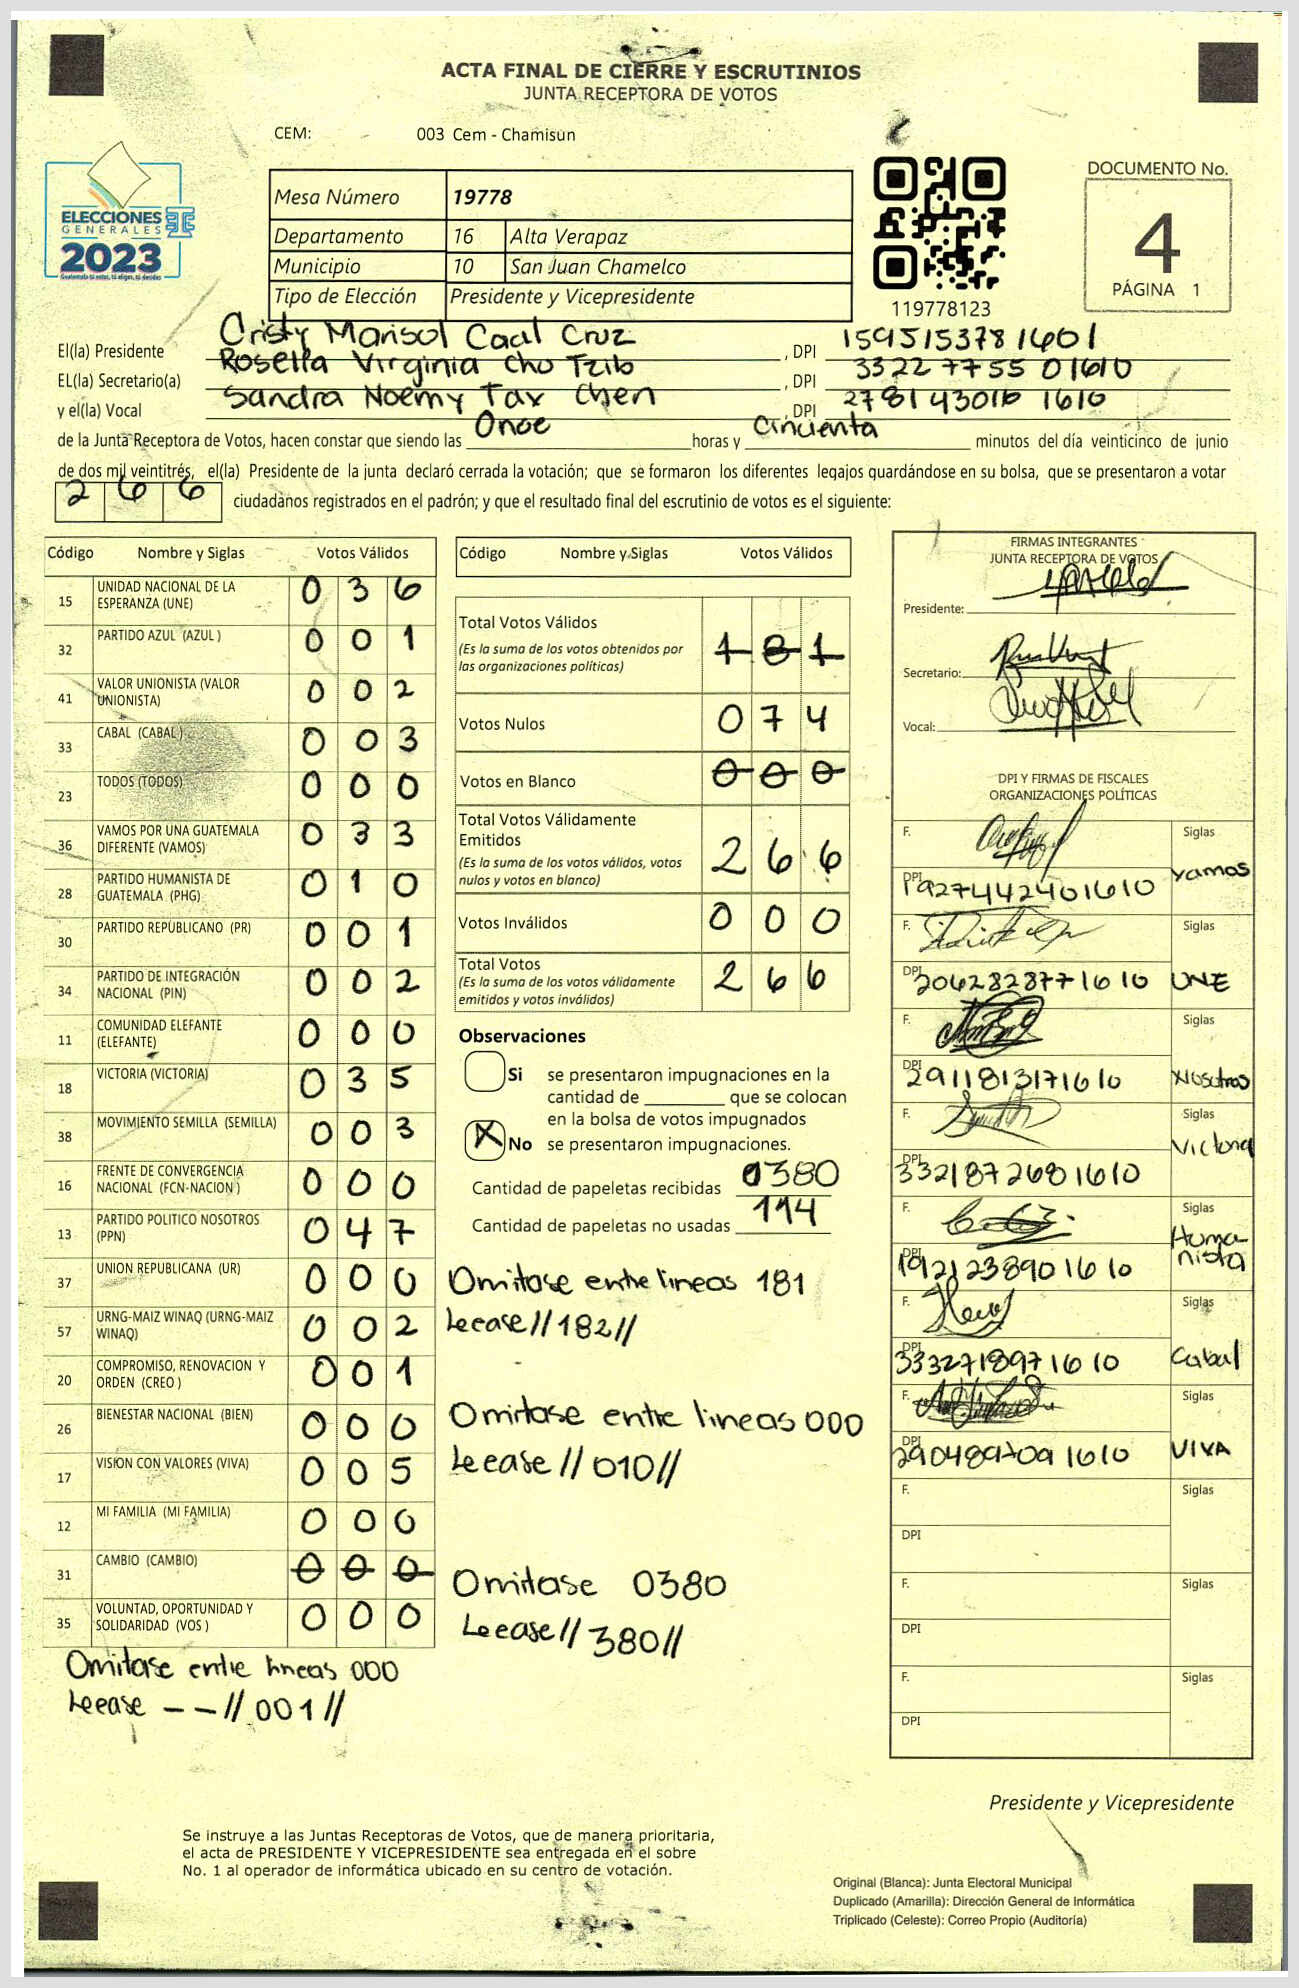 ACTA FINAL DE CIERRE Y ESCRUTINIOS
JUNTA RECEPTORA DE VOTOS
CEM: 003 Cem - Chamisun
ELECCIONES
GENERALES
2023
Guatemala tú votas, tú eliges, tú decides
Mesa Número 19778
Departamento 16 Alta Verapaz
Municipio 10 San Juan Chamelco
Tipo de Elección Presidente y Vicepresidente
119778123
DOCUMENTO No.
4
PÁGINA 1
El(la) Presidente Cristy Marisol Caal Cruz, DPI 1595153781601
EL(la) Secretario(a) Rosella Virginia Cho Tzib, DPI 3322 7755 01610
y el(la) Vocal Sandra Noemy Tax Chen, DPI 278143016 1610
de la Junta Receptora de Votos, hacen constar que siendo las Once horas y cincuenta minutos del día veinticinco de junio
de dos mil veintitrés, el(la) Presidente de la junta declaró cerrada la votación; que se formaron los diferentes legajos guardándose en su bolsa, que se presentaron a votar
266 ciudadanos registrados en el padrón; y que el resultado final del escrutinio de votos es el siguiente:
Código Nombre y Siglas Votos Válidos
15 UNIDAD NACIONAL DE LA ESPERANZA (UNE) 0 3 6
32 PARTIDO AZUL (AZUL ) 0 0 1
41 VALOR UNIONISTA (VALOR UNIONISTA) 0 0 2
33 CABAL (CABAL) 0 0 3
23 TODOS (TODOS) 0 0 0
36 VAMOS POR UNA GUATEMALA DIFERENTE (VAMOS) 0 3 3
28 PARTIDO HUMANISTA DE GUATEMALA (PHG) 0 1 0
30 PARTIDO REPUBLICANO (PR) 0 0 1
34 PARTIDO DE INTEGRACIÓN NACIONAL (PIN) 0 0 2
11 COMUNIDAD ELEFANTE (ELEFANTE) 0 0 0
18 VICTORIA (VICTORIA) 0 3 5
38 MOVIMIENTO SEMILLA (SEMILLA) 0 0 3
16 FRENTE DE CONVERGENCIA NACIONAL (FCN-NACION ) 0 0 0
13 PARTIDO POLITICO NOSOTROS (PPN) 0 4 7
37 UNION REPUBLICANA (UR) 0 0 0
57 URNG-MAIZ WINAQ (URNG-MAIZ WINAQ) 0 0 2
20 COMPROMISO, RENOVACION Y ORDEN (CREO ) 0 0 1
26 BIENESTAR NACIONAL (BIEN) 0 0 0
17 VISION CON VALORES (VIVA) 0 0 5
12 MI FAMILIA (MI FAMILIA) 0 0 0
31 CAMBIO (CAMBIO) 0 0 0
35 VOLUNTAD, OPORTUNIDAD Y SOLIDARIDAD (VOS ) 0 0 0
Omitase entre lineas 000
Leease -- // 001 //
Código Nombre y Siglas Votos Válidos
Total Votos Válidos 1 8 1
(Es la suma de los votos obtenidos por
las organizaciones políticas)
Votos Nulos 0 7 4
Votos en Blanco 0 0 0
Total Votos Válidamente
Emitidos 2 6 6
(Es la suma de los votos válidos, votos
nulos y votos en blanco)
Votos Inválidos 0 0 0
Total Votos 2 6 6
(Es la suma de los votos válidamente
emitidos y votos inválidos)
Observaciones
Si se presentaron impugnaciones en la
cantidad de ________ que se colocan
en la bolsa de votos impugnados
X No se presentaron impugnaciones.
Cantidad de papeletas recibidas 0380
Cantidad de papeletas no usadas 114
Omitase entre lineas 181
Leease // 182 //
Omitase entre lineas 000
Leease // 010 //
Omitase 0380
Leease // 380 //
FIRMAS INTEGRANTES
JUNTA RECEPTORA DE VOTOS
Presidente:
Secretario:
Vocal:
DPI Y FIRMAS DE FISCALES
ORGANIZACIONES POLÍTICAS
F. Siglas
DPI 1927442401610 Vamos
F. Siglas
DPI 2062828771610 UNE
F. Siglas
DPI 2911813171610 Nosotros
F. Siglas
DPI 3321872681610 Victoria
F. Siglas
DPI 1921238901610 Humanista
F. Siglas
DPI 3332718971610 Cabal
F. Siglas
DPI 2904897091610 VIVA
F. Siglas
DPI
F. Siglas
DPI
F. Siglas
DPI
Presidente y Vicepresidente
Se instruye a las Juntas Receptoras de Votos, que de manera prioritaria,
el acta de PRESIDENTE Y VICEPRESIDENTE sea entregada en el sobre
No. 1 al operador de informática ubicado en su centro de votación.
Original (Blanca): Junta Electoral Municipal
Duplicado (Amarilla): Dirección General de Informática
Triplicado (Celeste): Correo Propio (Auditoría)